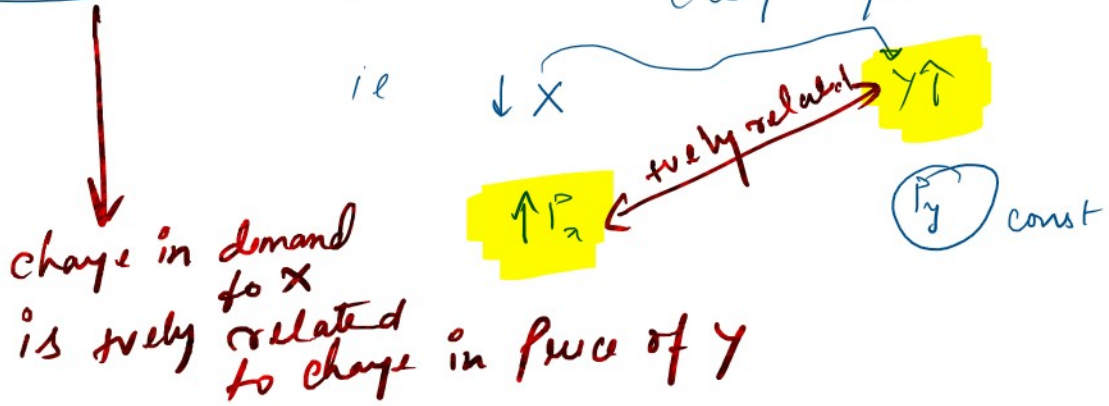 ie ↓ X Y↑
+vely related
↑ Px
Py const
change in demand
to X
is +vely related
to change in Price of Y